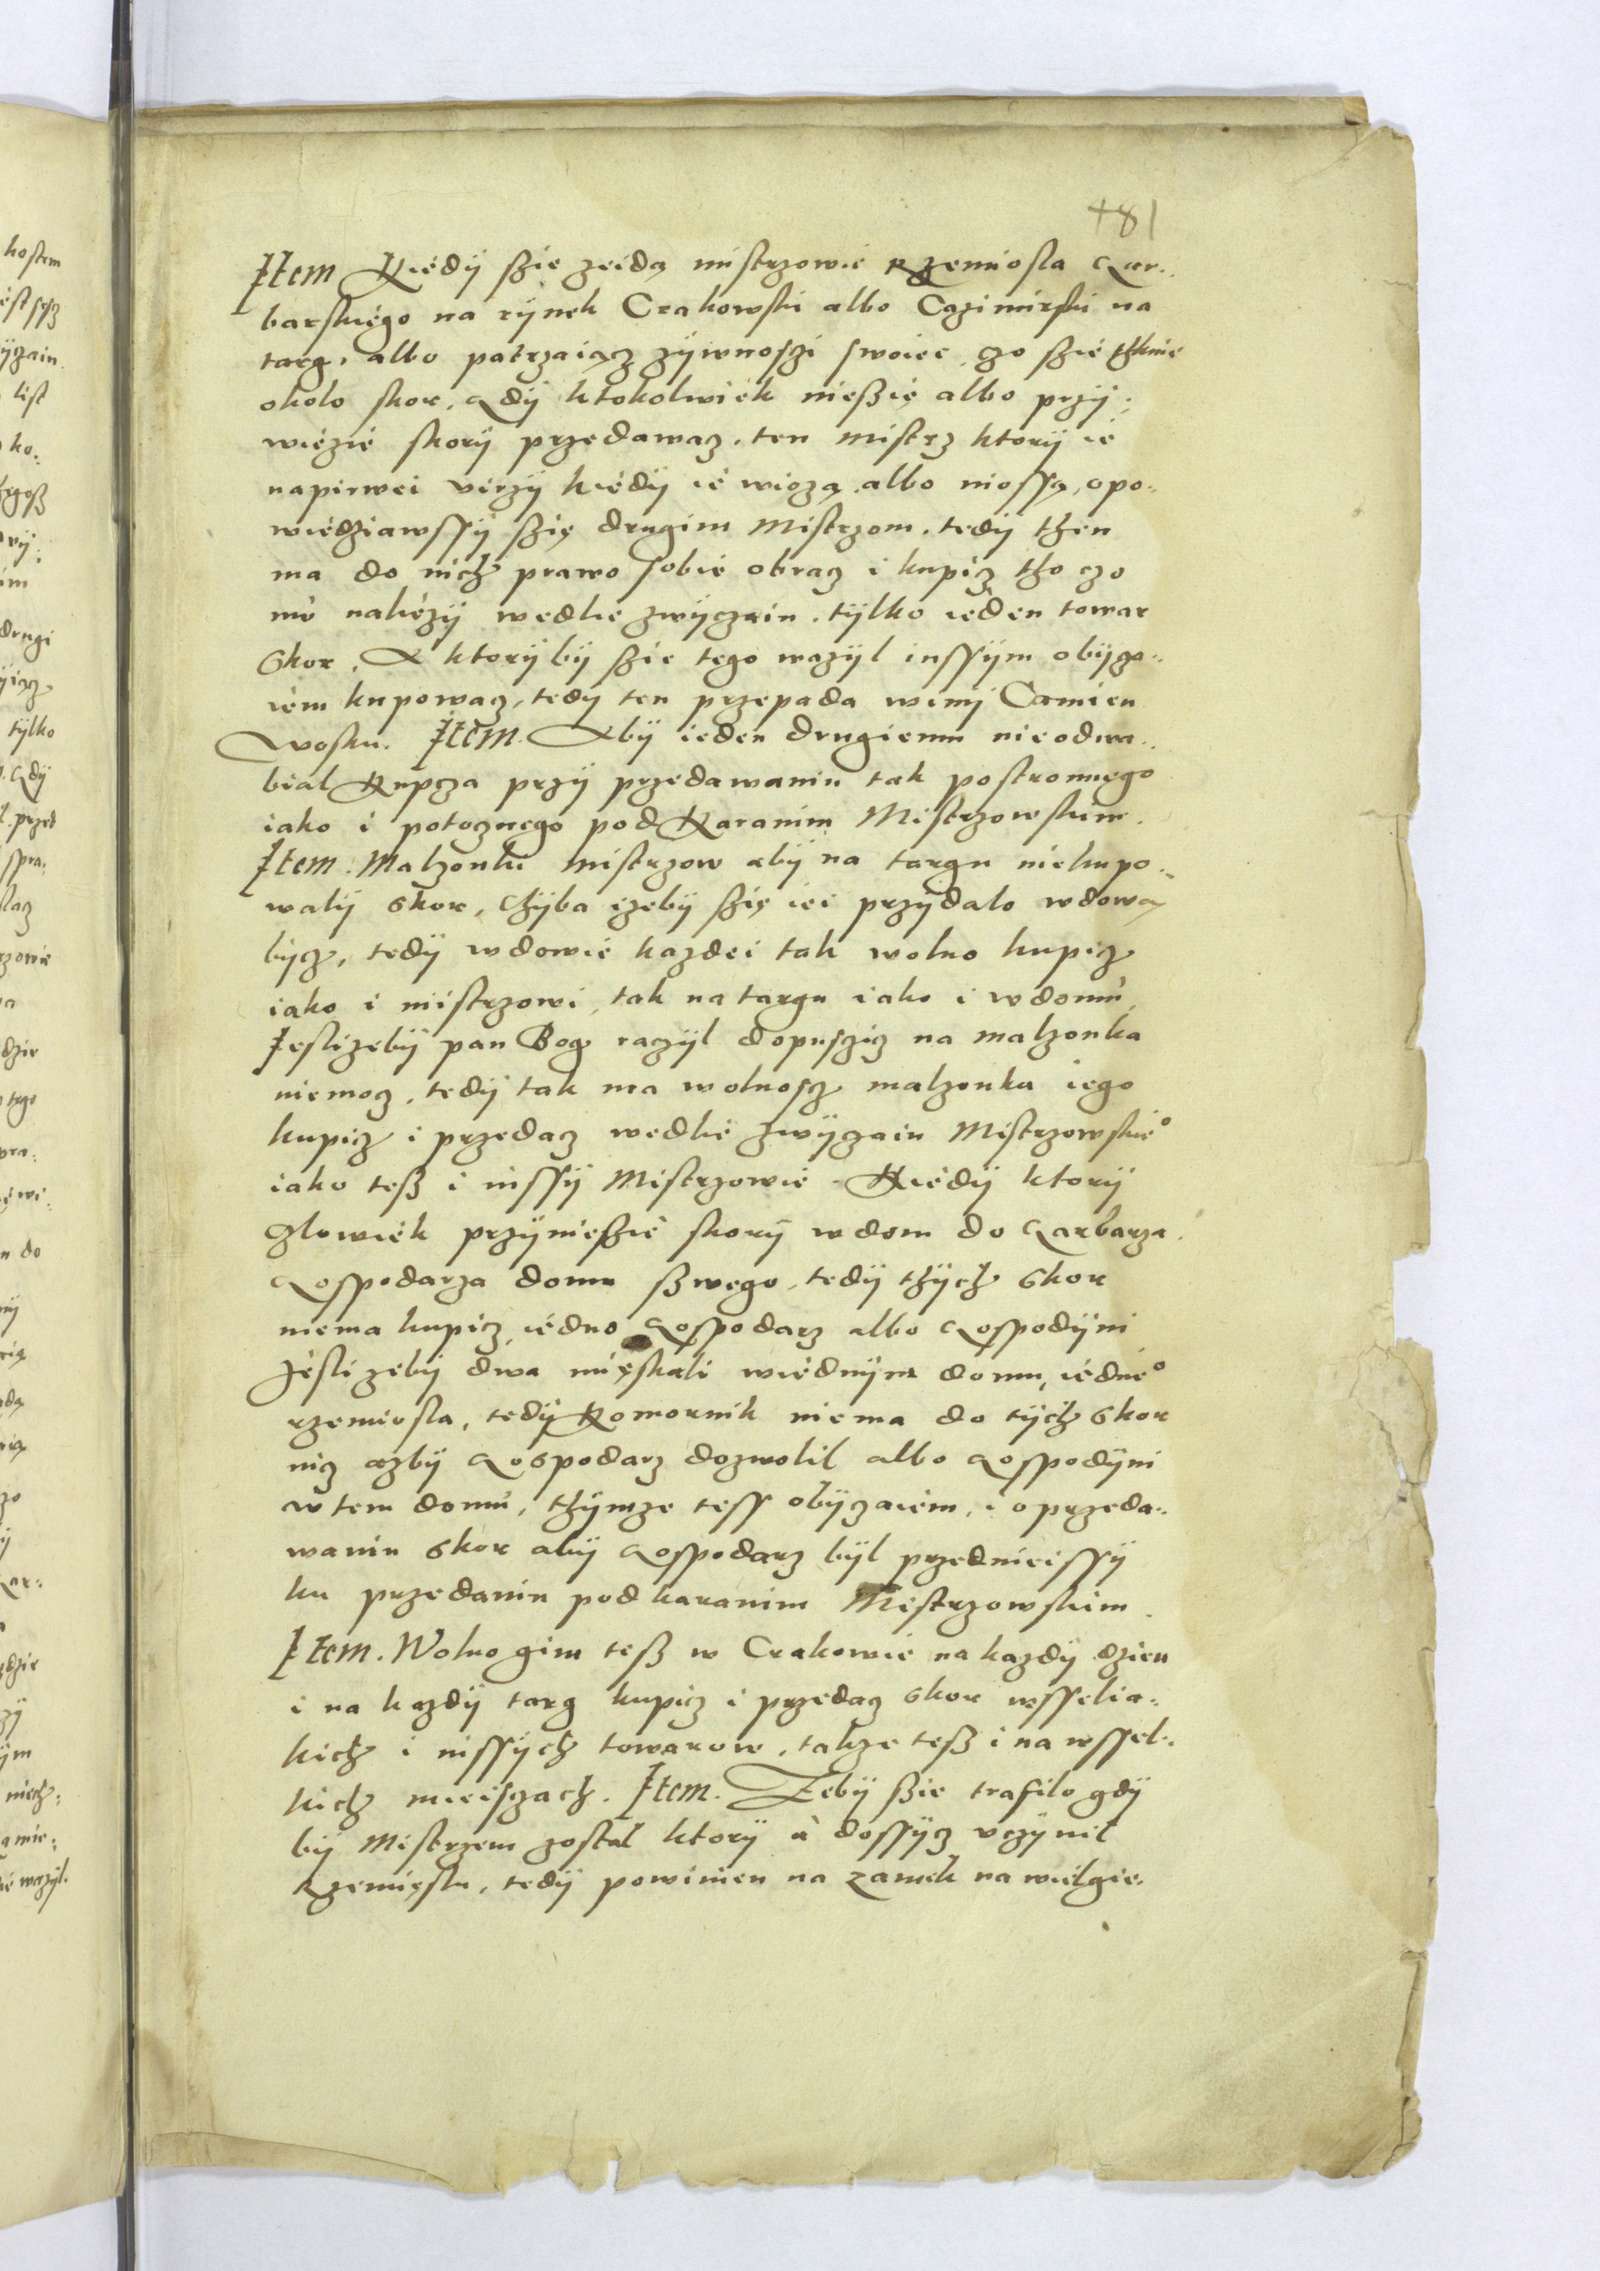 481
Item Kiedÿ ßzie zeidą mistrzowie Rzemiosla Gar-
barskiego na rÿnek Crakowski albo Cazimirski na
targ, albo patrzaiącz zÿwnosczi swoiei, czo ßzie thknie
okolo skor, Gdÿ ktokolwiek nießie albo przÿ-
wiezie skorÿ przedawacz, ten mistrz ktorÿ ie
napirwei virzÿ kiedÿ ie wiozą albo niossą, opo-
wiedziawssÿ ßzię drugim Mistrzom, tedÿ then
ma do nich prawo sobie obracz i kupicz tho czo
mu naliezÿ wedlie zwÿczaiu, tÿlko ieden towar
skor, A ktorÿ bÿ ßzie tego wazÿl inssÿm obÿcza-
iem kupowacz, tedÿ ten przepada winÿ Camien
Wosku. Item. Abÿ ieden drugiemu nie odwa-
bial Kupcza przÿ przedawaniu tak postronnego
iako i potocznego pod Karanim Mistrzowskim.
Item. Malzonki mistrzow abÿ na targu niekupo-
walÿ skor, chÿba izebÿ ßzię iei przÿdalo wdową
bÿcz, tedÿ wdowie kazdei tak wolno kupicz
iako i mistrzowi, tak na targu iako i w domu,
Jeslizebÿ pan Bog raczÿl dopusczicz na malzonka
niemocz, tedÿ tak ma wolnoscz malzonka iego
kupicz i przedacz wedlie zwÿczaiu Mistrzowskieº
iako teß i inssÿ Mistrzowie. Kiedÿ ktorÿ
Czlowiek przÿnießie skorÿ w dom do Garbarza
Gospodarza domu ßwego, tedÿ thÿch skor
niema kupicz, iedno Gospodarz albo Gospodÿni
Jeslizebÿ dwa mięskali wiednÿm domu, iedneº
rzemiosla, tedÿ Komornik niema do tÿch skor
nicz azbÿ Gospodarz dozwolil albo Gospodÿni
w tem domu, thÿmze tess obÿczaiem, i o przeda-
waniu skor abÿ Gospodarz bÿl przednieissÿ
ku przedaniu pod karanim Mistrzowskim.
Item. Wolno gim teß w Crakowie na kazdÿ dzien
i na kazdÿ targ kupicz i przedacz skor wsselia-
kich i inssÿch towarow, takze teß i na wssel-
kich mieisczach. Item. Zebÿ ßie trafilo gdÿ
bÿ Mistrzem zostal ktorÿ a dossÿcz vczÿnil
Rzemięslu, tedÿ powinien na zamek na wielgie-